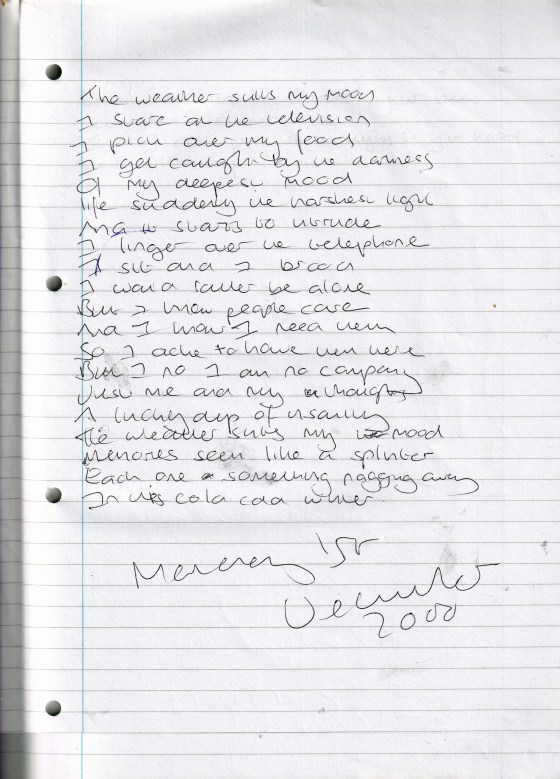 The weather suits my mood
I stare at the television
I pick over my food
I get caught by the darkness
Of my deepest mood
life suddenly the harshest light
And it starts to intrude
I linger over the telephone
I sit and I brood
I would rather be alone
But I know people care
And I know I need them
So I ache to have them here
But I no I am no company
Just me and my thoughts
A lucky dip of insanity
The weather suits my mood
Memories seem like a splinter
Each one a something nagging away
In this cold cold winter
1st
December
2000